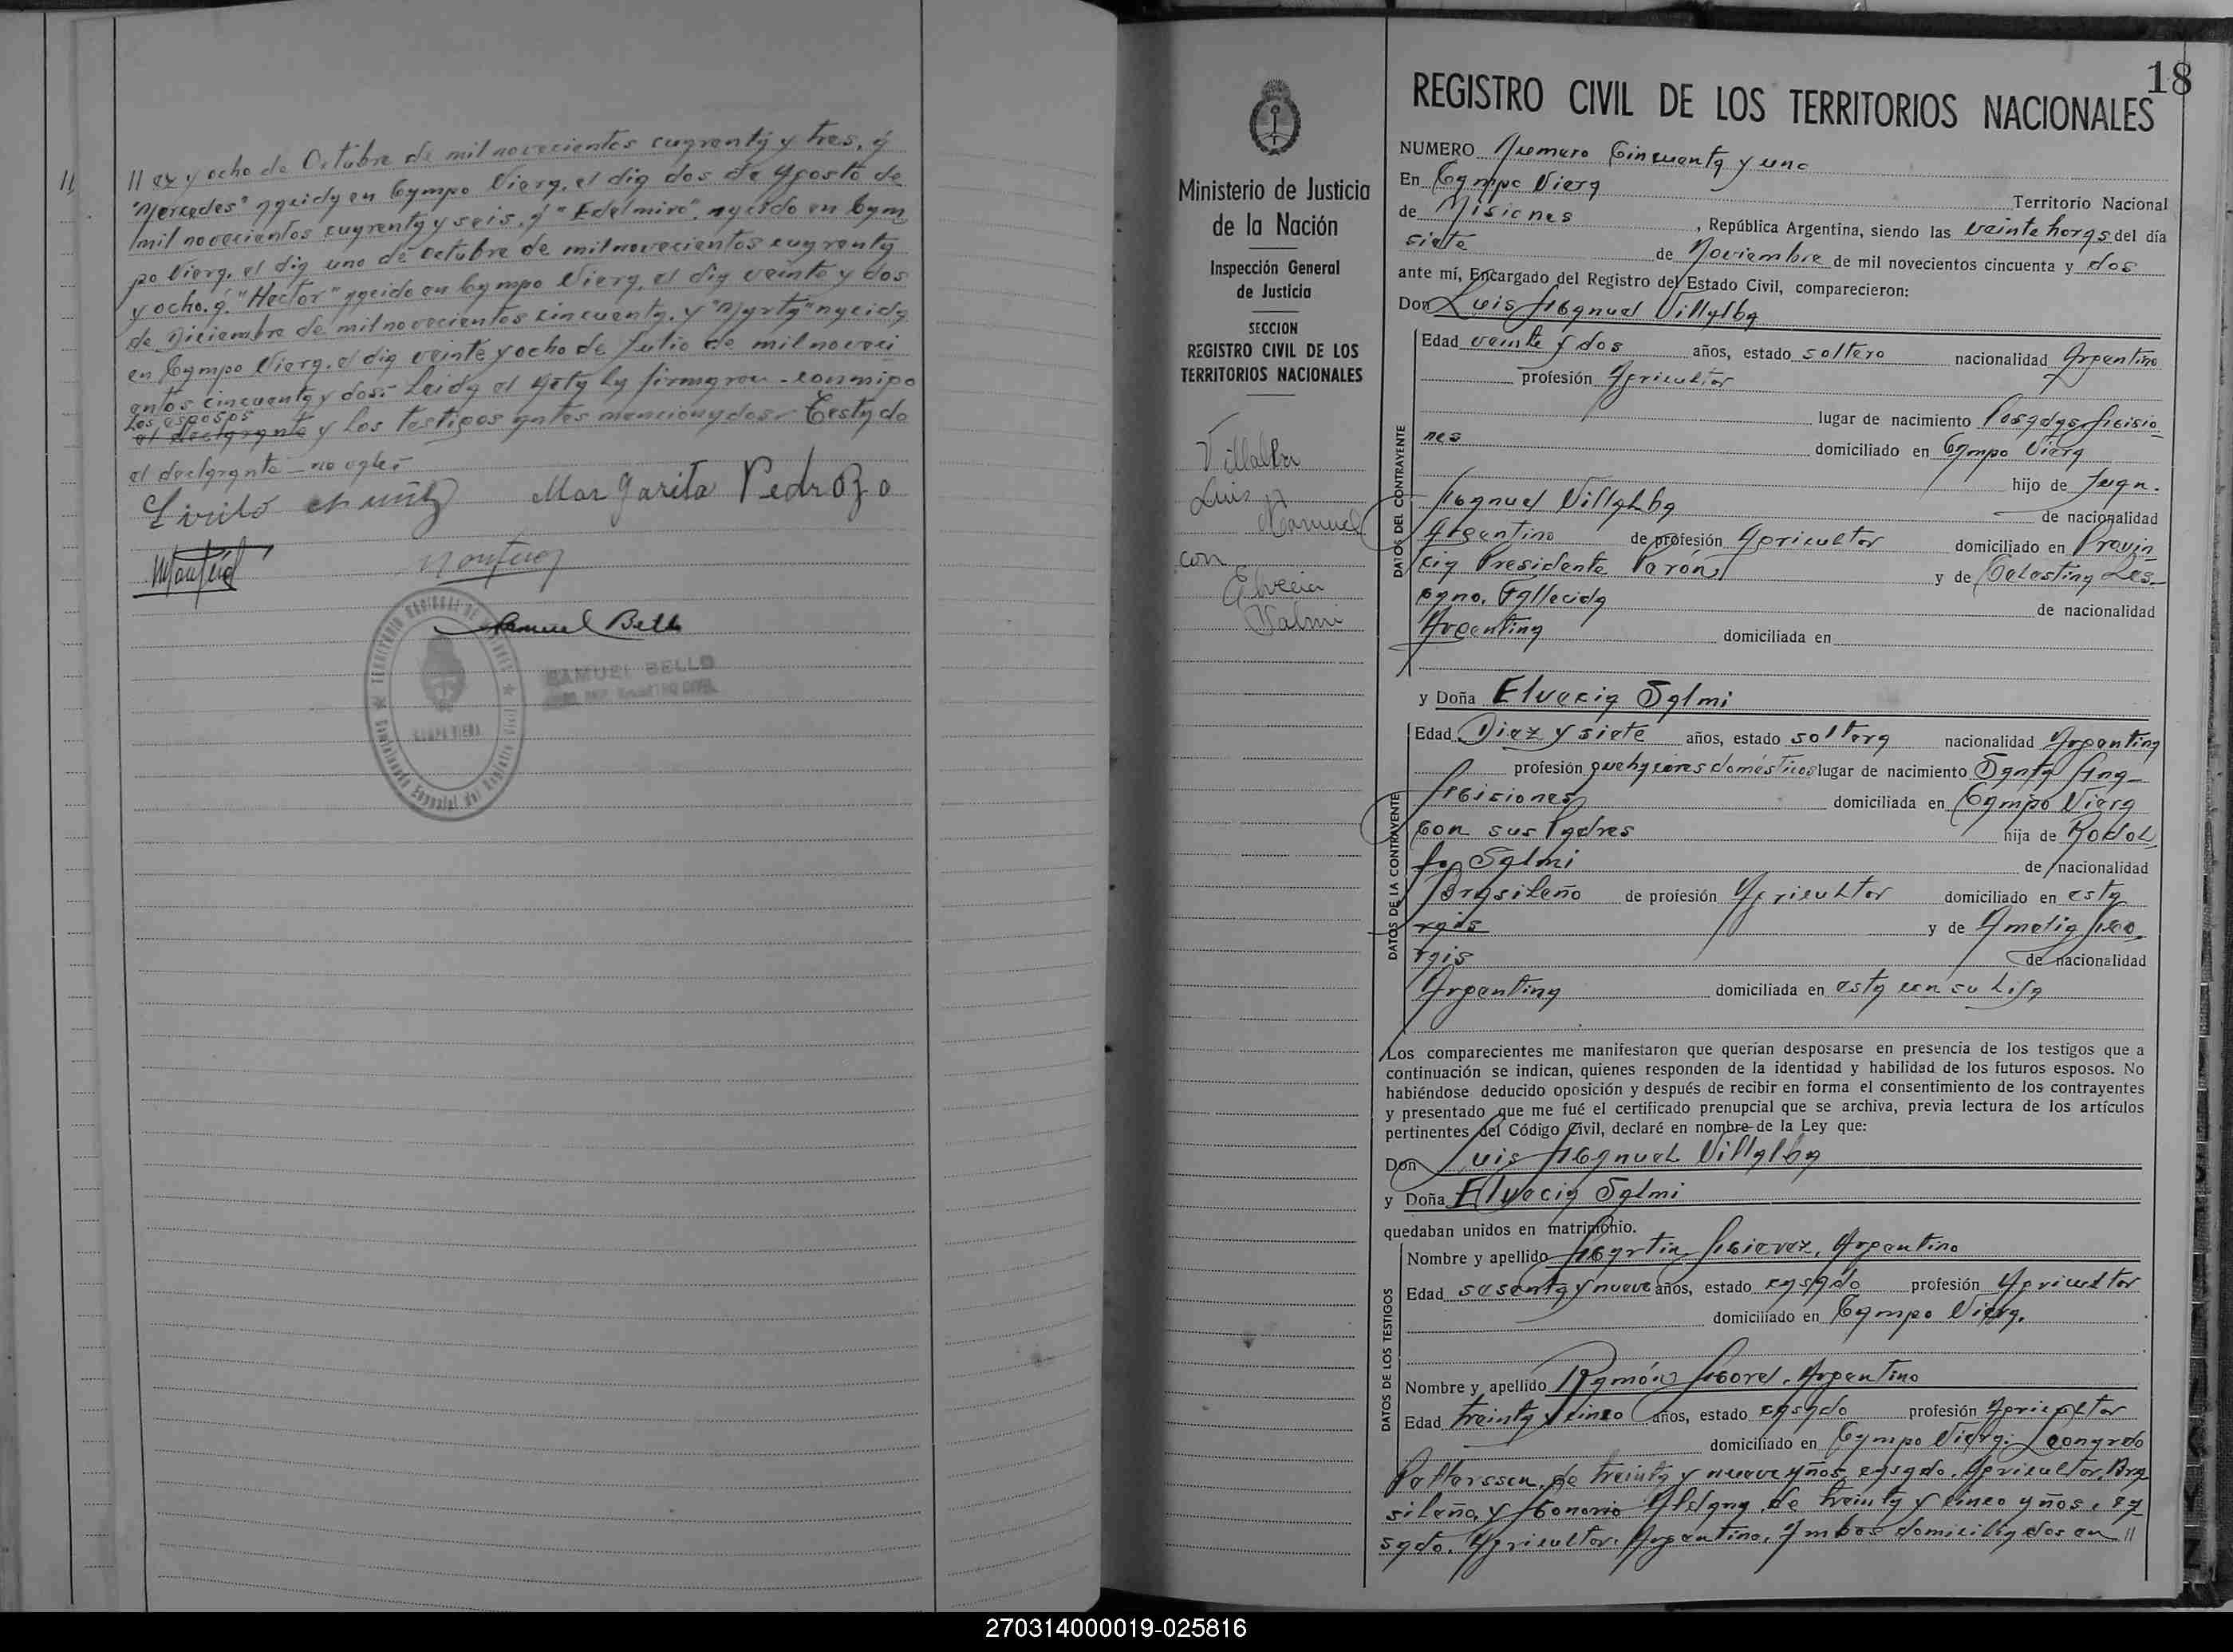 // ez y ocho de Octubre de mil novecientos cuarenta y tres, á
"Mercedes" nacida en Campo Viera, el dia dos de Agosto de
mil novecientos cuarenta y seis, á "Edelmiro", nacido en Cam
po Viera, el dia uno de octubre de mil novecientos cuarenta
y ocho. á "Hector" nacido en Campo Viera, el dia veinte y dos
de Diciembre de mil novecientos cincuenta, y "Myrta" nacida
en Campo Viera, el dia veinte y ocho de Julio de mil noveci
entos cincuenta y dos.- Leida el Acta la firmaron-conmigo
Los esposos
el declarante y los testigos antes mencionados.- Testado
el declarante - no vale.-
Margarita Pedrozo
Samuel Bello
SAMUEL BELLO
CAMPO VIERA
18
REGISTRO CIVIL DE LOS TERRITORIOS NACIONALES
Ministerio de Justicia
de la Nación
Inspección General
de Justicia
SECCION
REGISTRO CIVIL DE LOS
TERRITORIOS NACIONALES
Villalba
Luis
Manuel
con
Elvecia
Dalmi
NUMERO Numero Cincuenta y uno
En Campo Viera Territorio Nacional
de Misiones, República Argentina, siendo las veinte horas del día
siete de Noviembre de mil novecientos cincuenta y dos
ante mí, Encargado del Registro del Estado Civil, comparecieron:
Don Luis Manuel Villalba
DATOS DEL CONTRAYENTE
Edad veinte y dos años, estado soltero nacionalidad Argentino
profesión Agricultor
lugar de nacimiento Posadas Misio
nes domiciliado en Campo Viera
hijo de Juan
Manuel Villalba de nacionalidad
Argentino de profesión Agricultor domiciliado en Provin
cia Presidente Perón y de Celestina Les
cano. Fallecida de nacionalidad
Argentina domiciliada en
y Doña Elvecia Dalmi
DATOS DE LA CONTRAYENTE
Edad Diez y siete años, estado soltera nacionalidad Argentina
profesión quehaceres domésticos lugar de nacimiento Santa Ana
Misiones domiciliada en Campo Viera
con sus Padres hija de Rodol
fo Dalmi de nacionalidad
Brasileño de profesión Agricultor domiciliado en esta
rais y de Amelia Mo
rais de nacionalidad
Argentina domiciliada en esta con su hija
Los comparecientes me manifestaron que querían desposarse en presencia de los testigos que a
continuación se indican, quienes responden de la identidad y habilidad de los futuros esposos. No
habiéndose deducido oposición y después de recibir en forma el consentimiento de los contrayentes
y presentado que me fué el certificado prenupcial que se archiva, previa lectura de los artículos
pertinentes del Código Civil, declaré en nombre de la Ley que:
Don Luis Manuel Villalba
y Doña Elvecia Dalmi
quedaban unidos en matrimonio.
DATOS DE LOS TESTIGOS
Nombre y apellido Martin Mierez, Argentino
Edad sesenta y nueve años, estado casado profesión Agricultor
domiciliado en Campo Viera.
Nombre y apellido Ramón Morel. Argentino
Edad treinta y cinco años, estado casado profesión Agricultor
domiciliado en Campo Viera. Leonardo
Pattersson, de treinta y nueve años, casado. Agricultor, Bra
sileño, y Honorio Aldana, de treinta y cinco años, ca
sado. Agricultor. Argentino, Ambos domiciliados en //
270314000019-025816